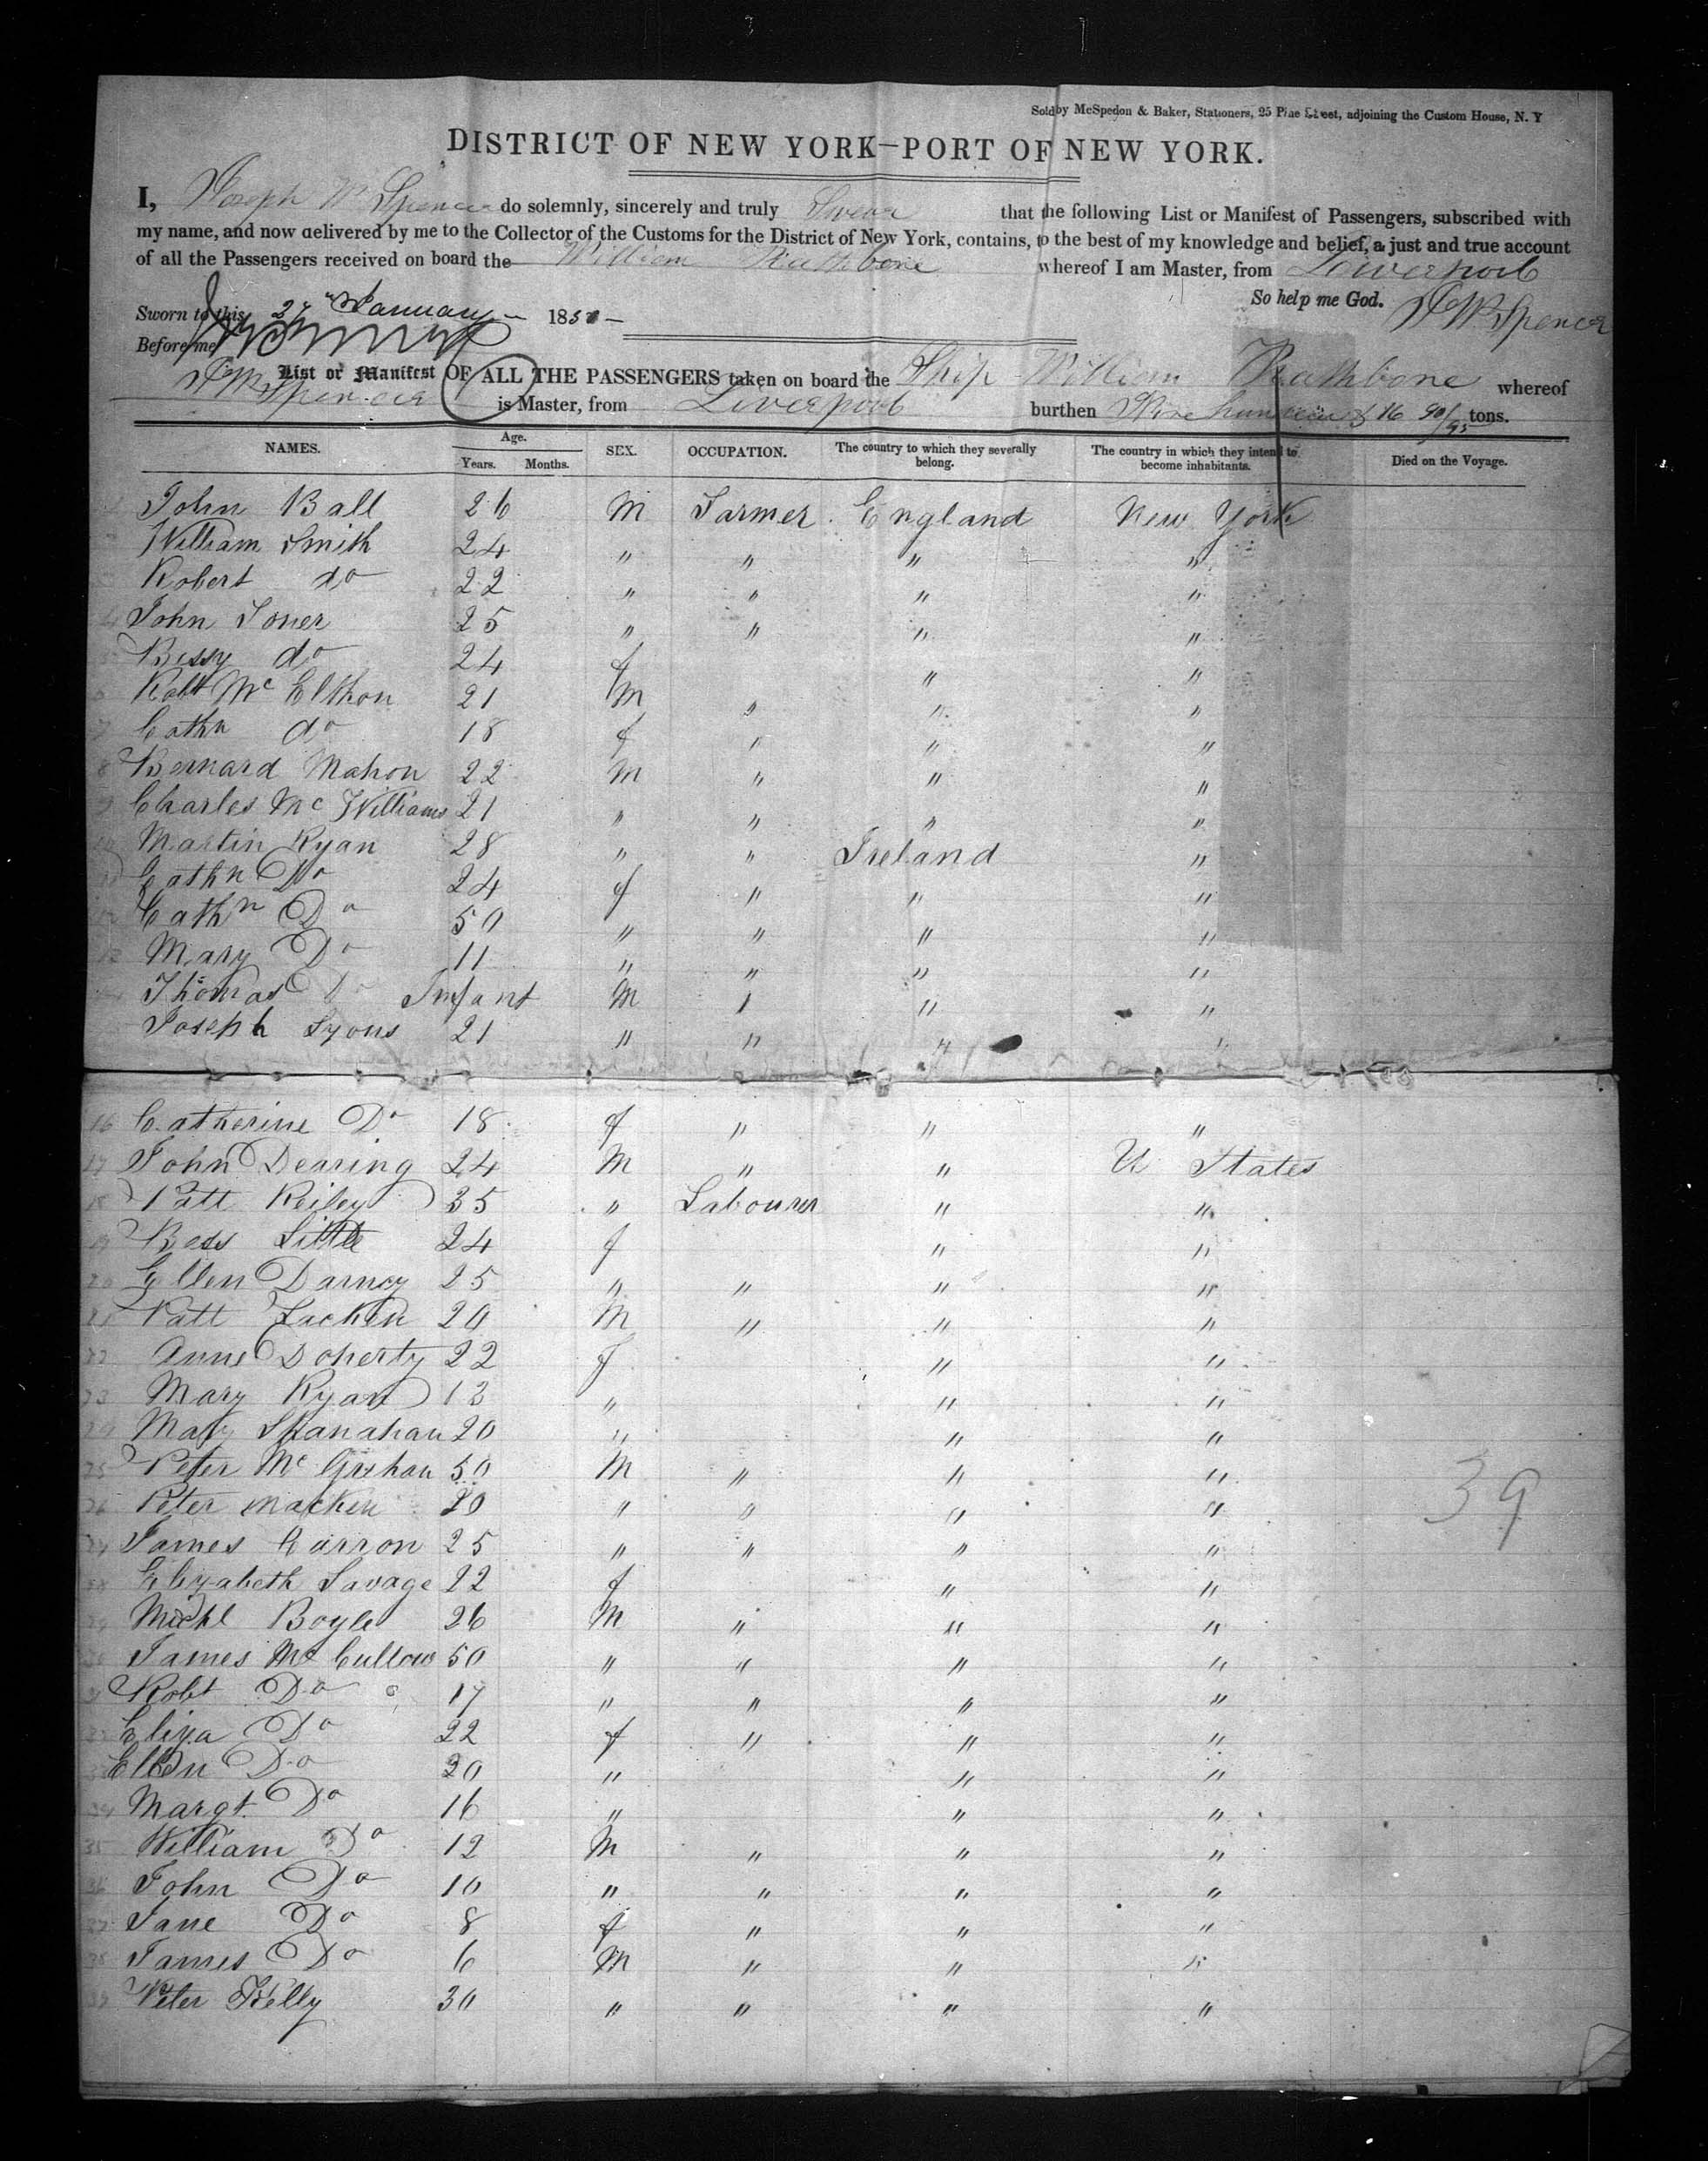 Sold by McSpedon & Baker, Stationers, 25 Pine Street, adjoining the Custom House, N. Y
DISTRICT OF NEW YORK—PORT OF NEW YORK.
I, Joseph W Spencer do solemnly, sincerely and truly Swear that the following List or Manifest of Passengers, subscribed with
my name, and now delivered by me to the Collector of the Customs for the District of New York, contains, to the best of my knowledge and belief, a just and true account
of all the Passengers received on board the William Rathbone whereof I am Master, from Liverpool
So help me God. J W Spencer
Sworn to this 27 January 185
Before me
List or Manifest OF ALL THE PASSENGERS taken on board the Ship William Rathbone whereof
J W Spencer is Master, from Liverpool burthen Nine hundred & 16 90/95 tons.
NAMES. Age. Years. Months. SEX. OCCUPATION. The country to which they severally belong. The country in which they intend to become inhabitants. Died on the Voyage.
John Ball 26 M Farmer England New York
William Smith 24 " " " "
Robert do 22 " " " "
4 John Toner 25 " " " "
5 Bessy do 24 f " "
6 Robt Mc Elthon 21 M " " "
7 Cathn do 18 f " " "
8 Bernard Mahon 22 M " " "
9 Charles Mc Williams 21 " " " "
10 Martin Ryan 28 " " Ireland "
11 Cathn Do 24 f " " "
12 Cathn Do 50 " " " "
13 Mary Do 11 " " " "
Thomas Do Infant M " " "
Joseph Lyons 21 " " " "
16 Catherine Do 18 f " " "
17 John Dearing 24 M " " U States
18 Patt Reiley 35 " Labourer " "
19 Bess Little 24 f " "
20 Ellen Darncy 25 " " " "
21 Patt Lacken 20 M " " "
22 Anne Doherty 22 f " "
23 Mary Ryan 13 " " "
24 Mary Shanahan 20 " " "
25 Peter Mc 50 M " " "
26 Peter Macken 20 " " " "
27 James Carron 25 " " " "
28 Elizabeth Savage 22 f " "
29 Michl Boyle 26 M " " "
30 James Mc Cullow 50 " " " "
31 Robt Do 17 " " " "
32 Eliza Do 22 f " " "
33 Ellen Do 20 " " "
34 Margt Do 16 " " "
35 William Do 12 M " " "
36 John Do 10 " " " "
37 Jane Do 8 f " " "
38 James Do 6 M " " "
39 Peter Kelly 30 " " " "
39